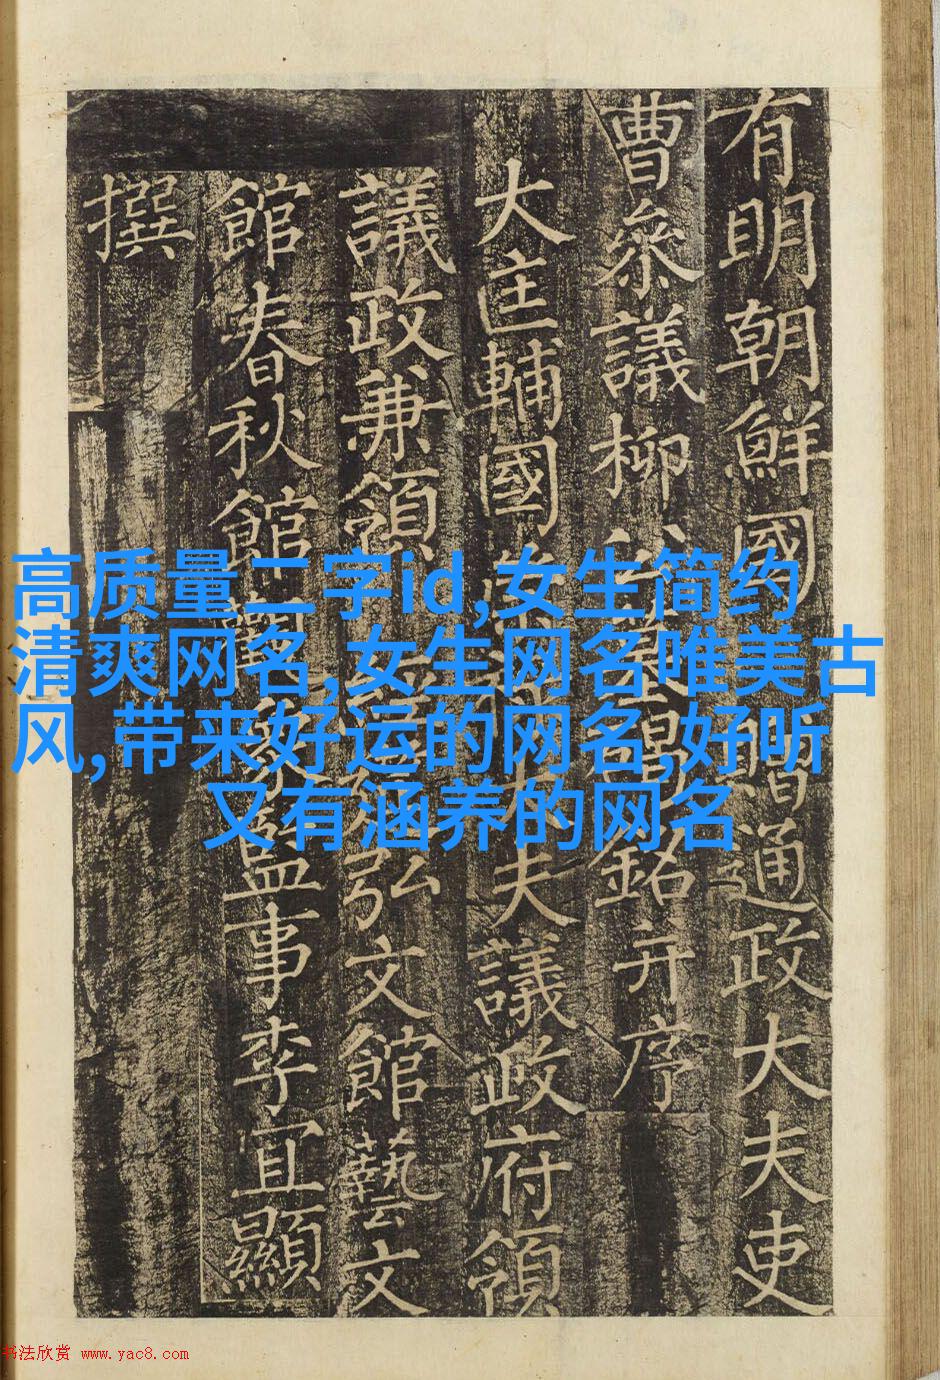 有明朝鮮國贈通政大夫吏
曹叅議柳公墓碣銘并序
大匡輔國崇祿大夫議政府領
議政兼領經筵弘文館藝文
館春秋館觀象監事李宜顯
撰
高质量二字id,女生简约
清爽网名,女生网名唯美古
风,带来好运的网名,好听
又有涵养的网名
书法欣赏 www.yac8.com